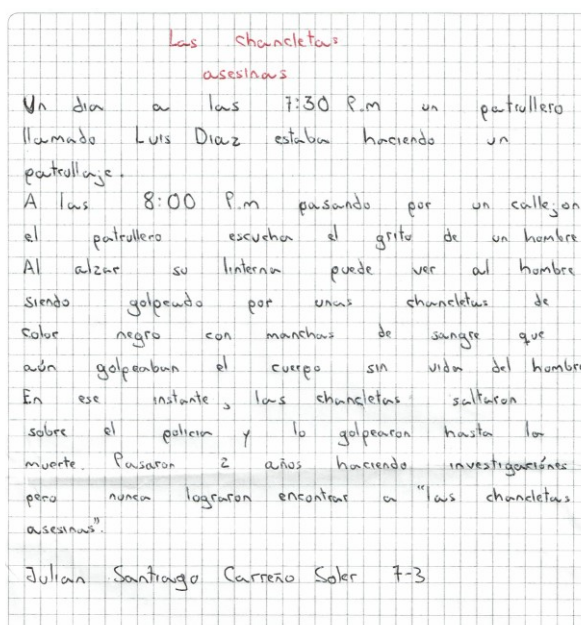 Las chancletas
asesinas
Un dia a las 7:30 P.m un patrullero
llamado Luis Diaz estaba haciendo un
patrullaje.
A las 8:00 P.m pasando por un callejon
el patrullero escucha el grito de un hombre
Al alzar su linterna puede ver al hombre
siendo golpeado por unas chancletas de
color negro con manchas de sangre que
aún golpeaban el cuerpo sin vida del hombre
En ese instante, las chancletas saltaron
sobre el policia y lo golpearon hasta la
muerte. Pasaron 2 años haciendo investigaciónes
pero nunca lograron encontrar a "las chancletas
asesinas".
Julian Santiago Carreño Soler 7-3